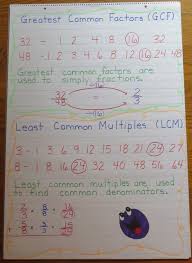 Greatest Common Factors (GCF)
32 - 1 2 4 8 16 32
48 - 1 2 3 4 6 8 12 16 24 48
Greatest common factors are
used to simplify fractions.
32 2
48 3
Least Common Multiples (LCM)
3 - 1 3 6 9 12 15 18 21 24
8 - 1 8 16 24 32 40 48 56 64
Least common multiples are used
to find common denominators.
2 8 16
3 8 24